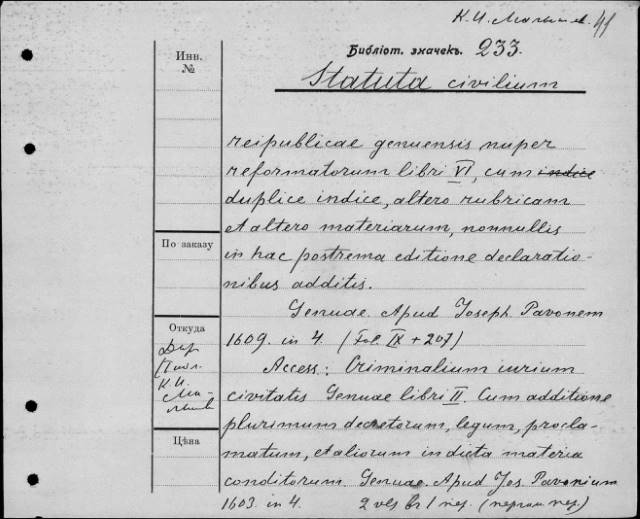 К. И. 41
Библіот. значекъ. 233.
Инв.
№
Statuta civilium
reipublicae genuensis nuper
reformatorum libri VI, cum indice
duplice indice, altero rubricam
et altero materiarum, nonnullis
in hac postrema editione declaratio-
nibus additis.
По заказу
Genuae. Apud Joseph. Pavonem
1609. in 4. (Fol. IX + 207)
Откуда
Дар
К. И.
Access: Criminalium iurium
civitatis Genuae libri II. Cum additione
plurimum decretorum, legum, procla-
matum, et aliorum in dicta materia
conditorum Genuae. Apud Jos. Pavonium
1603. in 4. 2 vls br 1 пер. (перг. пер.)
Цѣна